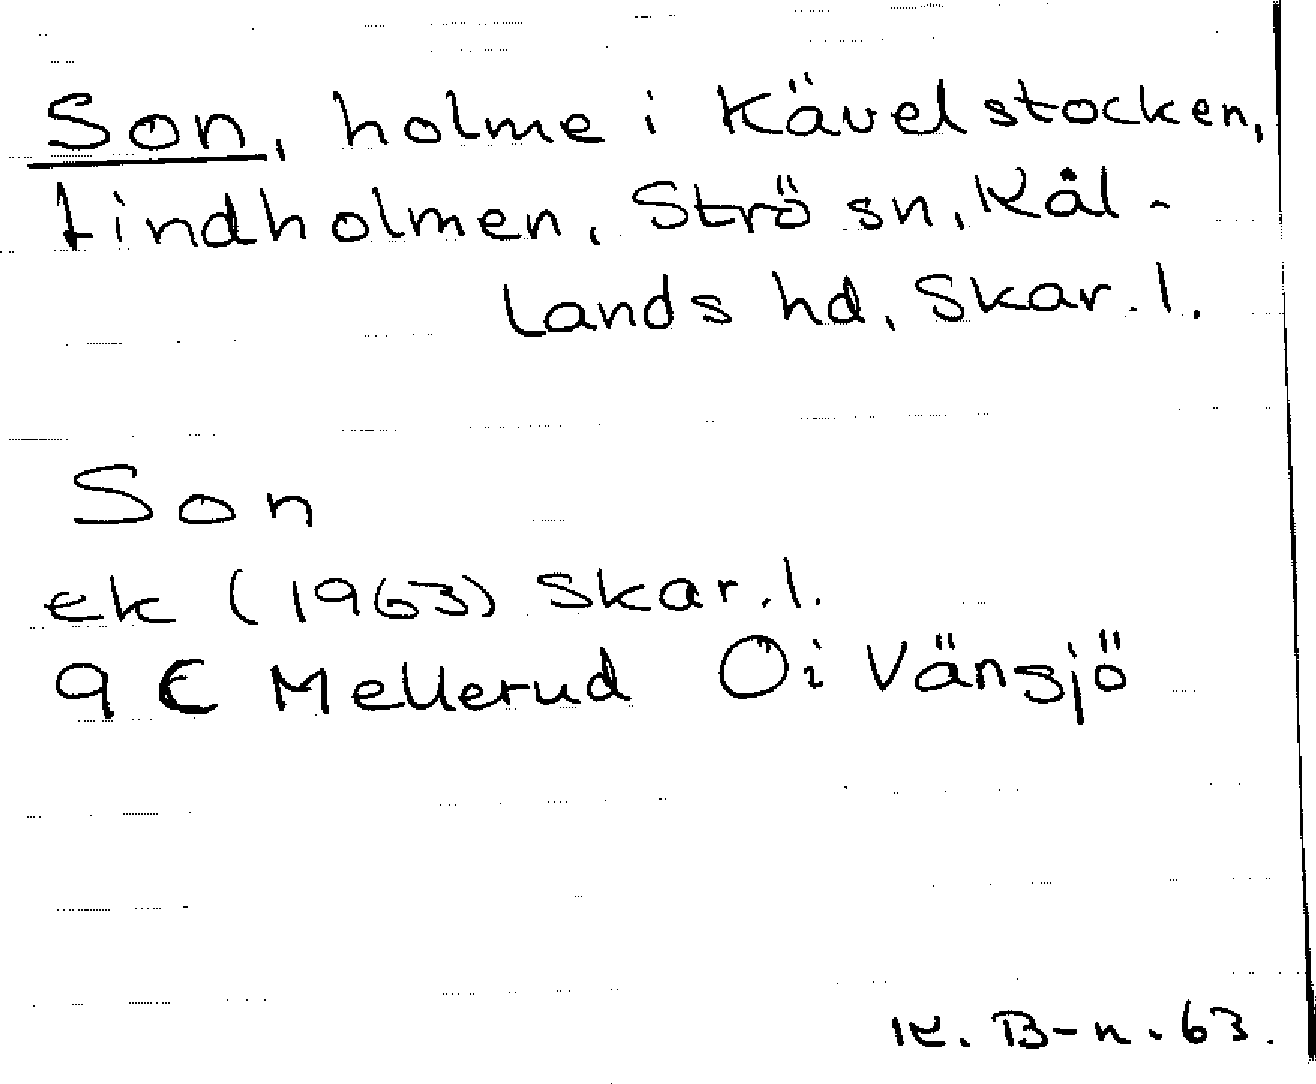 Son, holme i Kävelstocken,
Lindholmen, Strö sn, Kål-
lands hd, Skar. l.
Son
ek (1963) Skar. l.
9 C Mellerud Öi Vänsjö
K. B-n. 63.